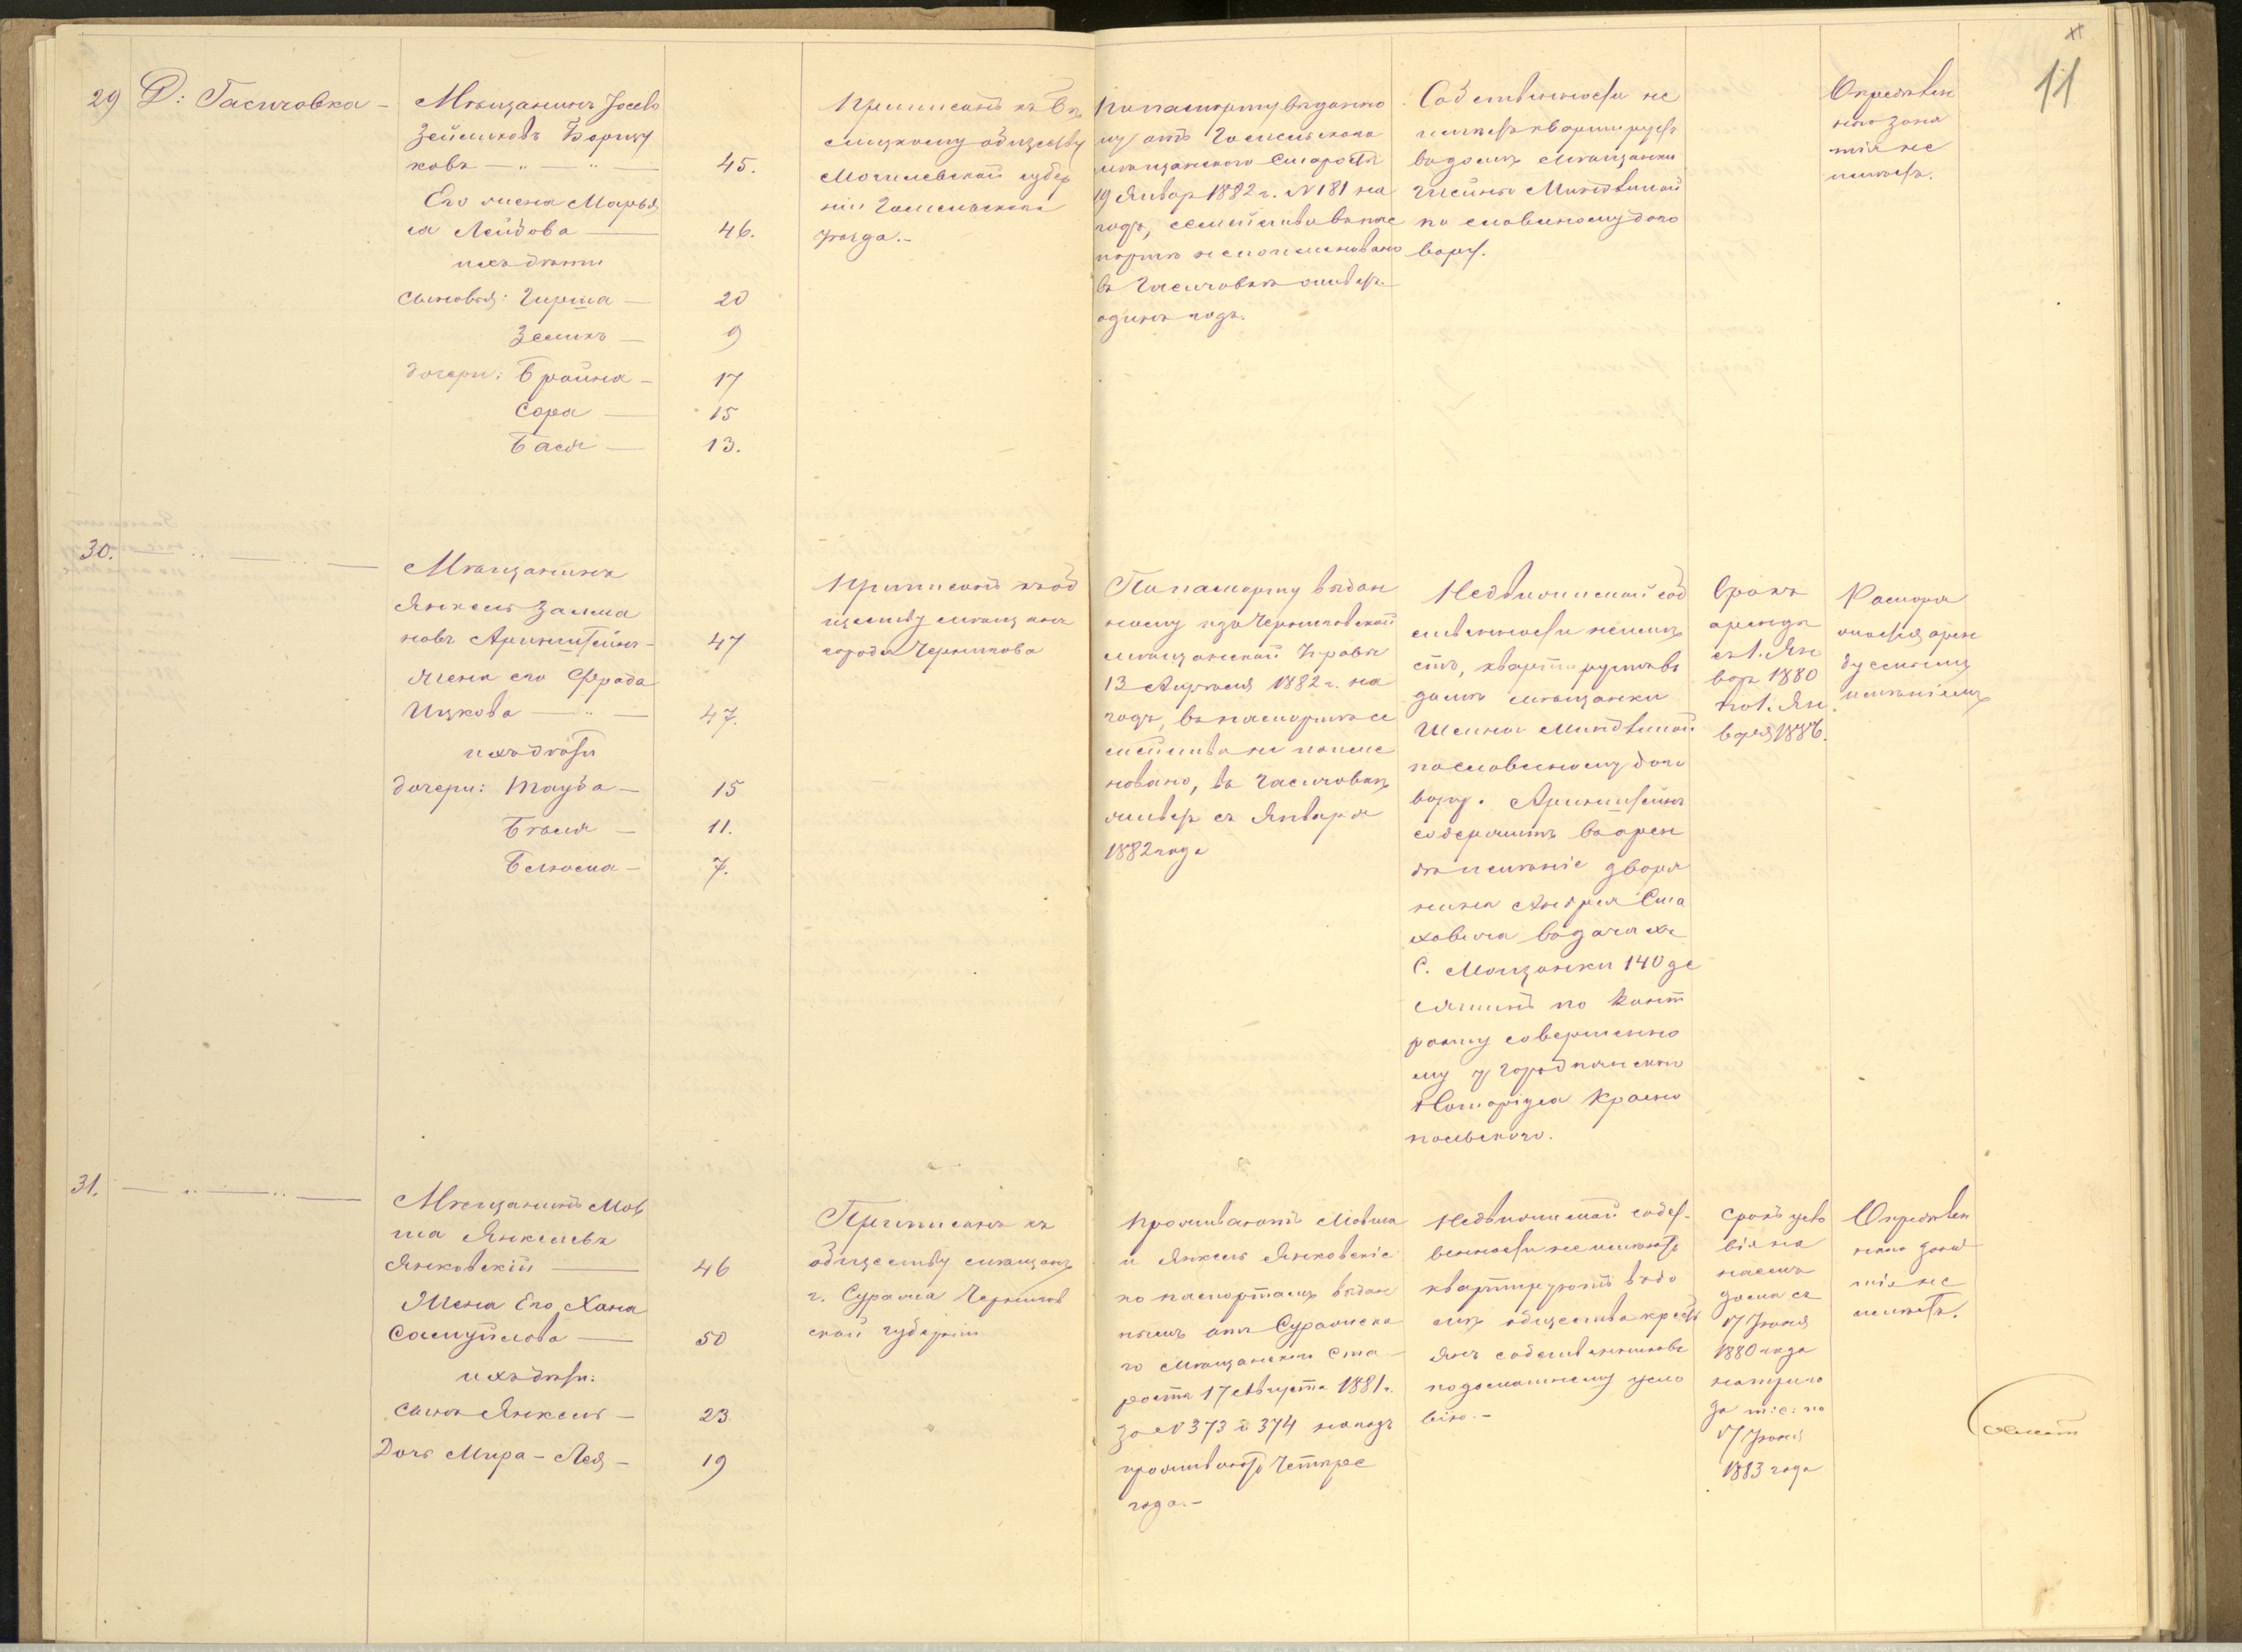 11
29 Д: Гасичовка -
Мѣщанинъ Іосебъ
Зеймиковъ Борщу
ковъ — 45.
Его жена Марья
са Лейдова — 46.
ихъ дѣти
сыновья: Гирша — 20
Земикъ — 9
дочери: Брайна - 17
Сора — 15
Бася — 13.
Приписанъ къ
обществу
Могилевской губер
ніи Гомельскаго
уѣзда.-
По паспорту выданно
му отъ Гомельскаго
мѣщанскаго Старосты
19 Январ 1882 г. № 181 на
годъ, семейство въ пас
портѣ не поименовано
въ Гасичовкѣ живетъ
одинъ годъ.
Собственности не
имѣетъ квартируетъ
въ домѣ мѣщанки
Шейны Миндлиной
по словесному дого
вору.
Опредѣлен
наго заня
тія не
имѣетъ.
30. — „ — „ —
Мѣщанинъ
Янкель Залма
новъ Аринштейнъ - 47
жена его Фрада
Ицкова — „ — 47.
ихъ дѣти
дочери: Тауба — 15
Бѣля — 11.
Блюма — 7.
Приписанъ къ об
ществу мѣщанъ
города Чернигова
По паспорту выдан
ному изъ Черниговской
мѣщанской Управы
13 Апрѣля 1882 г. на
годъ, въ паспортѣ се
мейство не поиме
новано, въ Гасичовкѣ
живетъ съ Января
1882 года
Недвижимой соб
ственности не имѣ
етъ, квартируетъ въ
домѣ мѣщанки
Шейны Миндлиной
по словесному дого
вору. Аринштейнъ
содержитъ въ арен
дѣ имѣніе дворя
нина Андрея Ста
ховича въ дачахъ
С. Мощонки 140 де
сятинъ по конт
ракту совершенно
му у Городнянскаго
Нотаріуса Красно
польскаго.
Срокъ
аренды
съ 1. Ян
вар 1880
по 1. Ян
варя 1886.
Распоря
жается арен
дуемымъ
имѣніемъ
31. — „ — „ —
Мѣщанинъ Мов
ша Янкелевъ
Янковскій — 46
Жена Его Хана
Самуйлова — 50
ихъ дѣти:
сынъ Янкель — 23
Дочь Мира - Лея — 19
Приписанъ къ
обществу мѣщанъ
г. Суража Чернигов
ской губерніи
Проживаютъ Мовша
и Янкель Янковскіе
по паспортамъ выдан
нымъ отъ Суражска
го Мѣщанскаго Ста
росты 17 Августа 1881 г.
за № 373 и 374 на годъ
проживаютъ Четыре
года.-
Недвижимой собст
венности не имѣютъ
квартируютъ въ до
мѣ общества кресть
янъ собственниковъ
по домашнему усло
вію.-
Срокъ усло
вія на
наемъ
дома съ
17 Іюня
1880 года
на три го
да т: е: по
17 Іюня
1883 года
Опредѣлен
наго заня
тія не
имѣетъ.